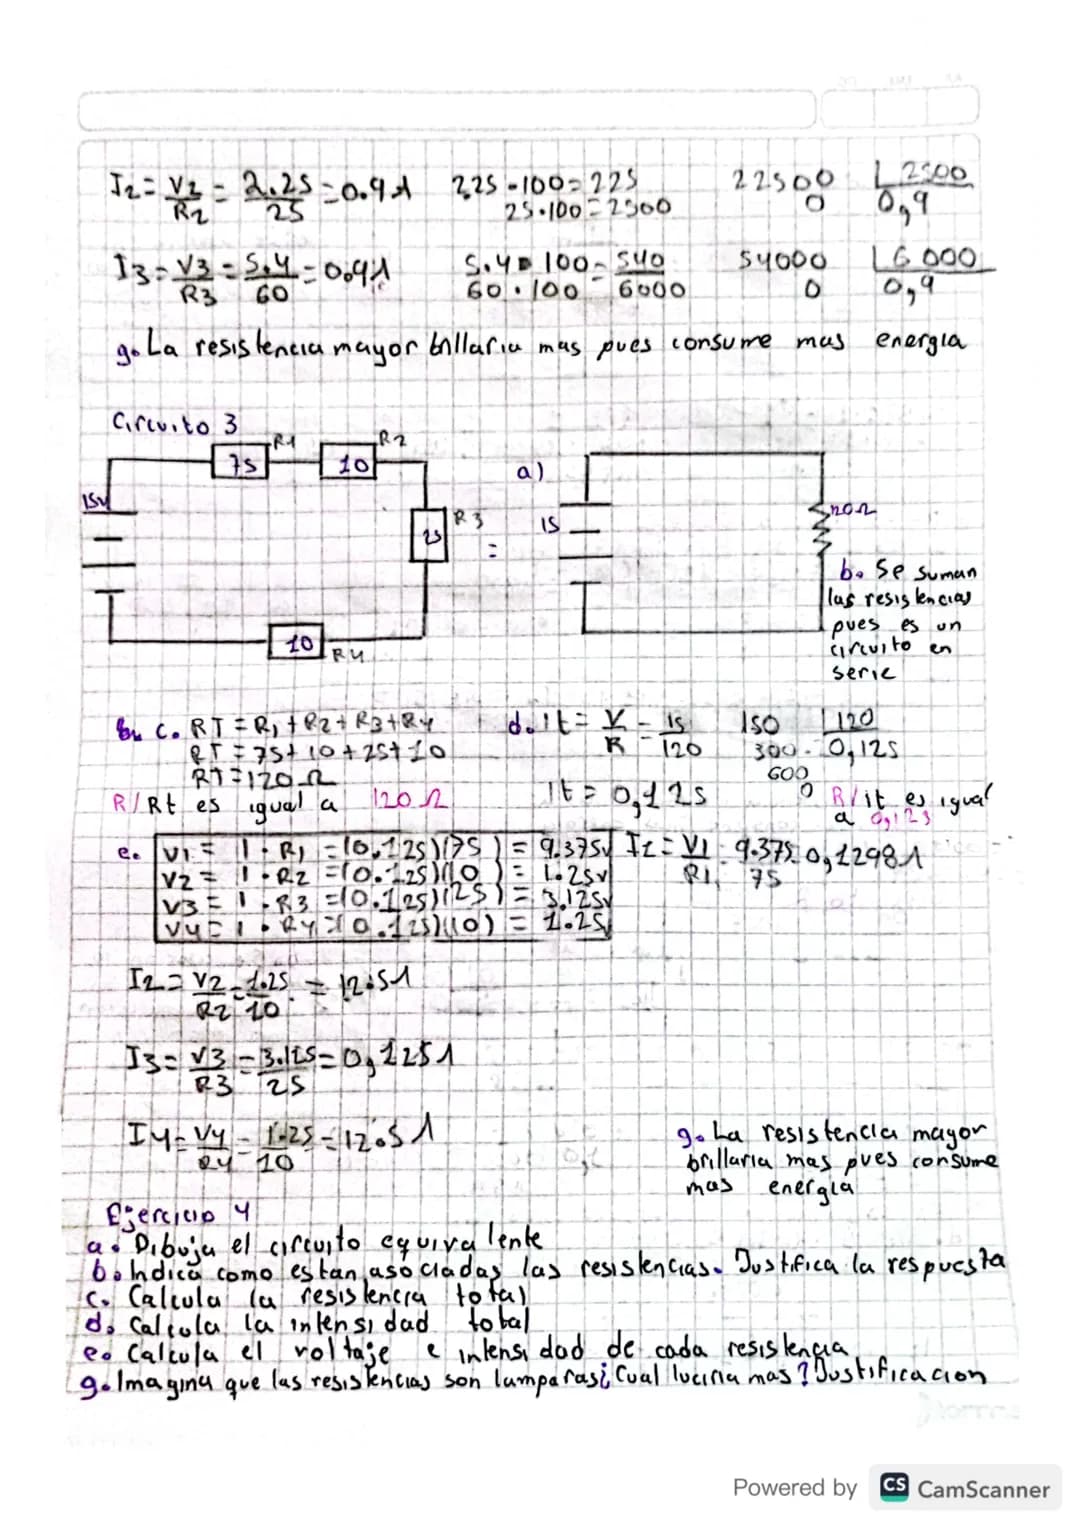 I2 = V2/R2 = 2.25/25 = 0.9A 2.25 · 100 = 225 22500 2500
25 · 100 = 2500 0 0,9
I3 = V3/R3 = 5.4/60 = 0.9A 5.4 · 100 = 540 54000 6000
60 · 100 6000 0 0,9
g. La resistencia mayor brillaria mas pues consume mas energia
Circuito 3
R1 R2
75 10
15v
R3
25
=
10
R4
a)
15
120Ω
b. Se suman
las resistencias
pues es un
circuito en
serie
c. RT = R1 + R2 + R3 + R4
RT = 75 + 10 + 25 + 10
RT = 120 Ω
R/ Rt es igual a 120 Ω
d. It = V/R = 15/120 150 120
300 0,125
600
0
It = 0,125
R/ it es igual
a 0,125
e. V1 = I · R1 = (0.125)(75) = 9.375v
V2 = I · R2 = (0.125)(10) = 1.25v
V3 = I · R3 = (0.125)(25) = 3.125v
V4 = I · R4 = (0.125)(10) = 1.25v
I1 = V1/R1 = 9.375/75 = 0,1298A
I2 = V2/R2 = 1.25/10 = 12.5A
I3 = V3/R3 = 3.125/25 = 0,125A
I4 = V4/R4 = 1.25/10 = 12.5A
g. La resistencia mayor
brillaria mas pues consume
mas energia
Ejercicio 4
a. Dibuja el circuito equivalente
b. Indica como estan asociadas las resistencias. Justifica la respuesta
c. Calcula la resistencia total
d. Calcula la intensidad total
e. Calcula el voltaje e intensidad de cada resistencia
g. Imagina que las resistencias son lamparas ¿Cual luciria mas? Justificacion
Powered by CS CamScanner